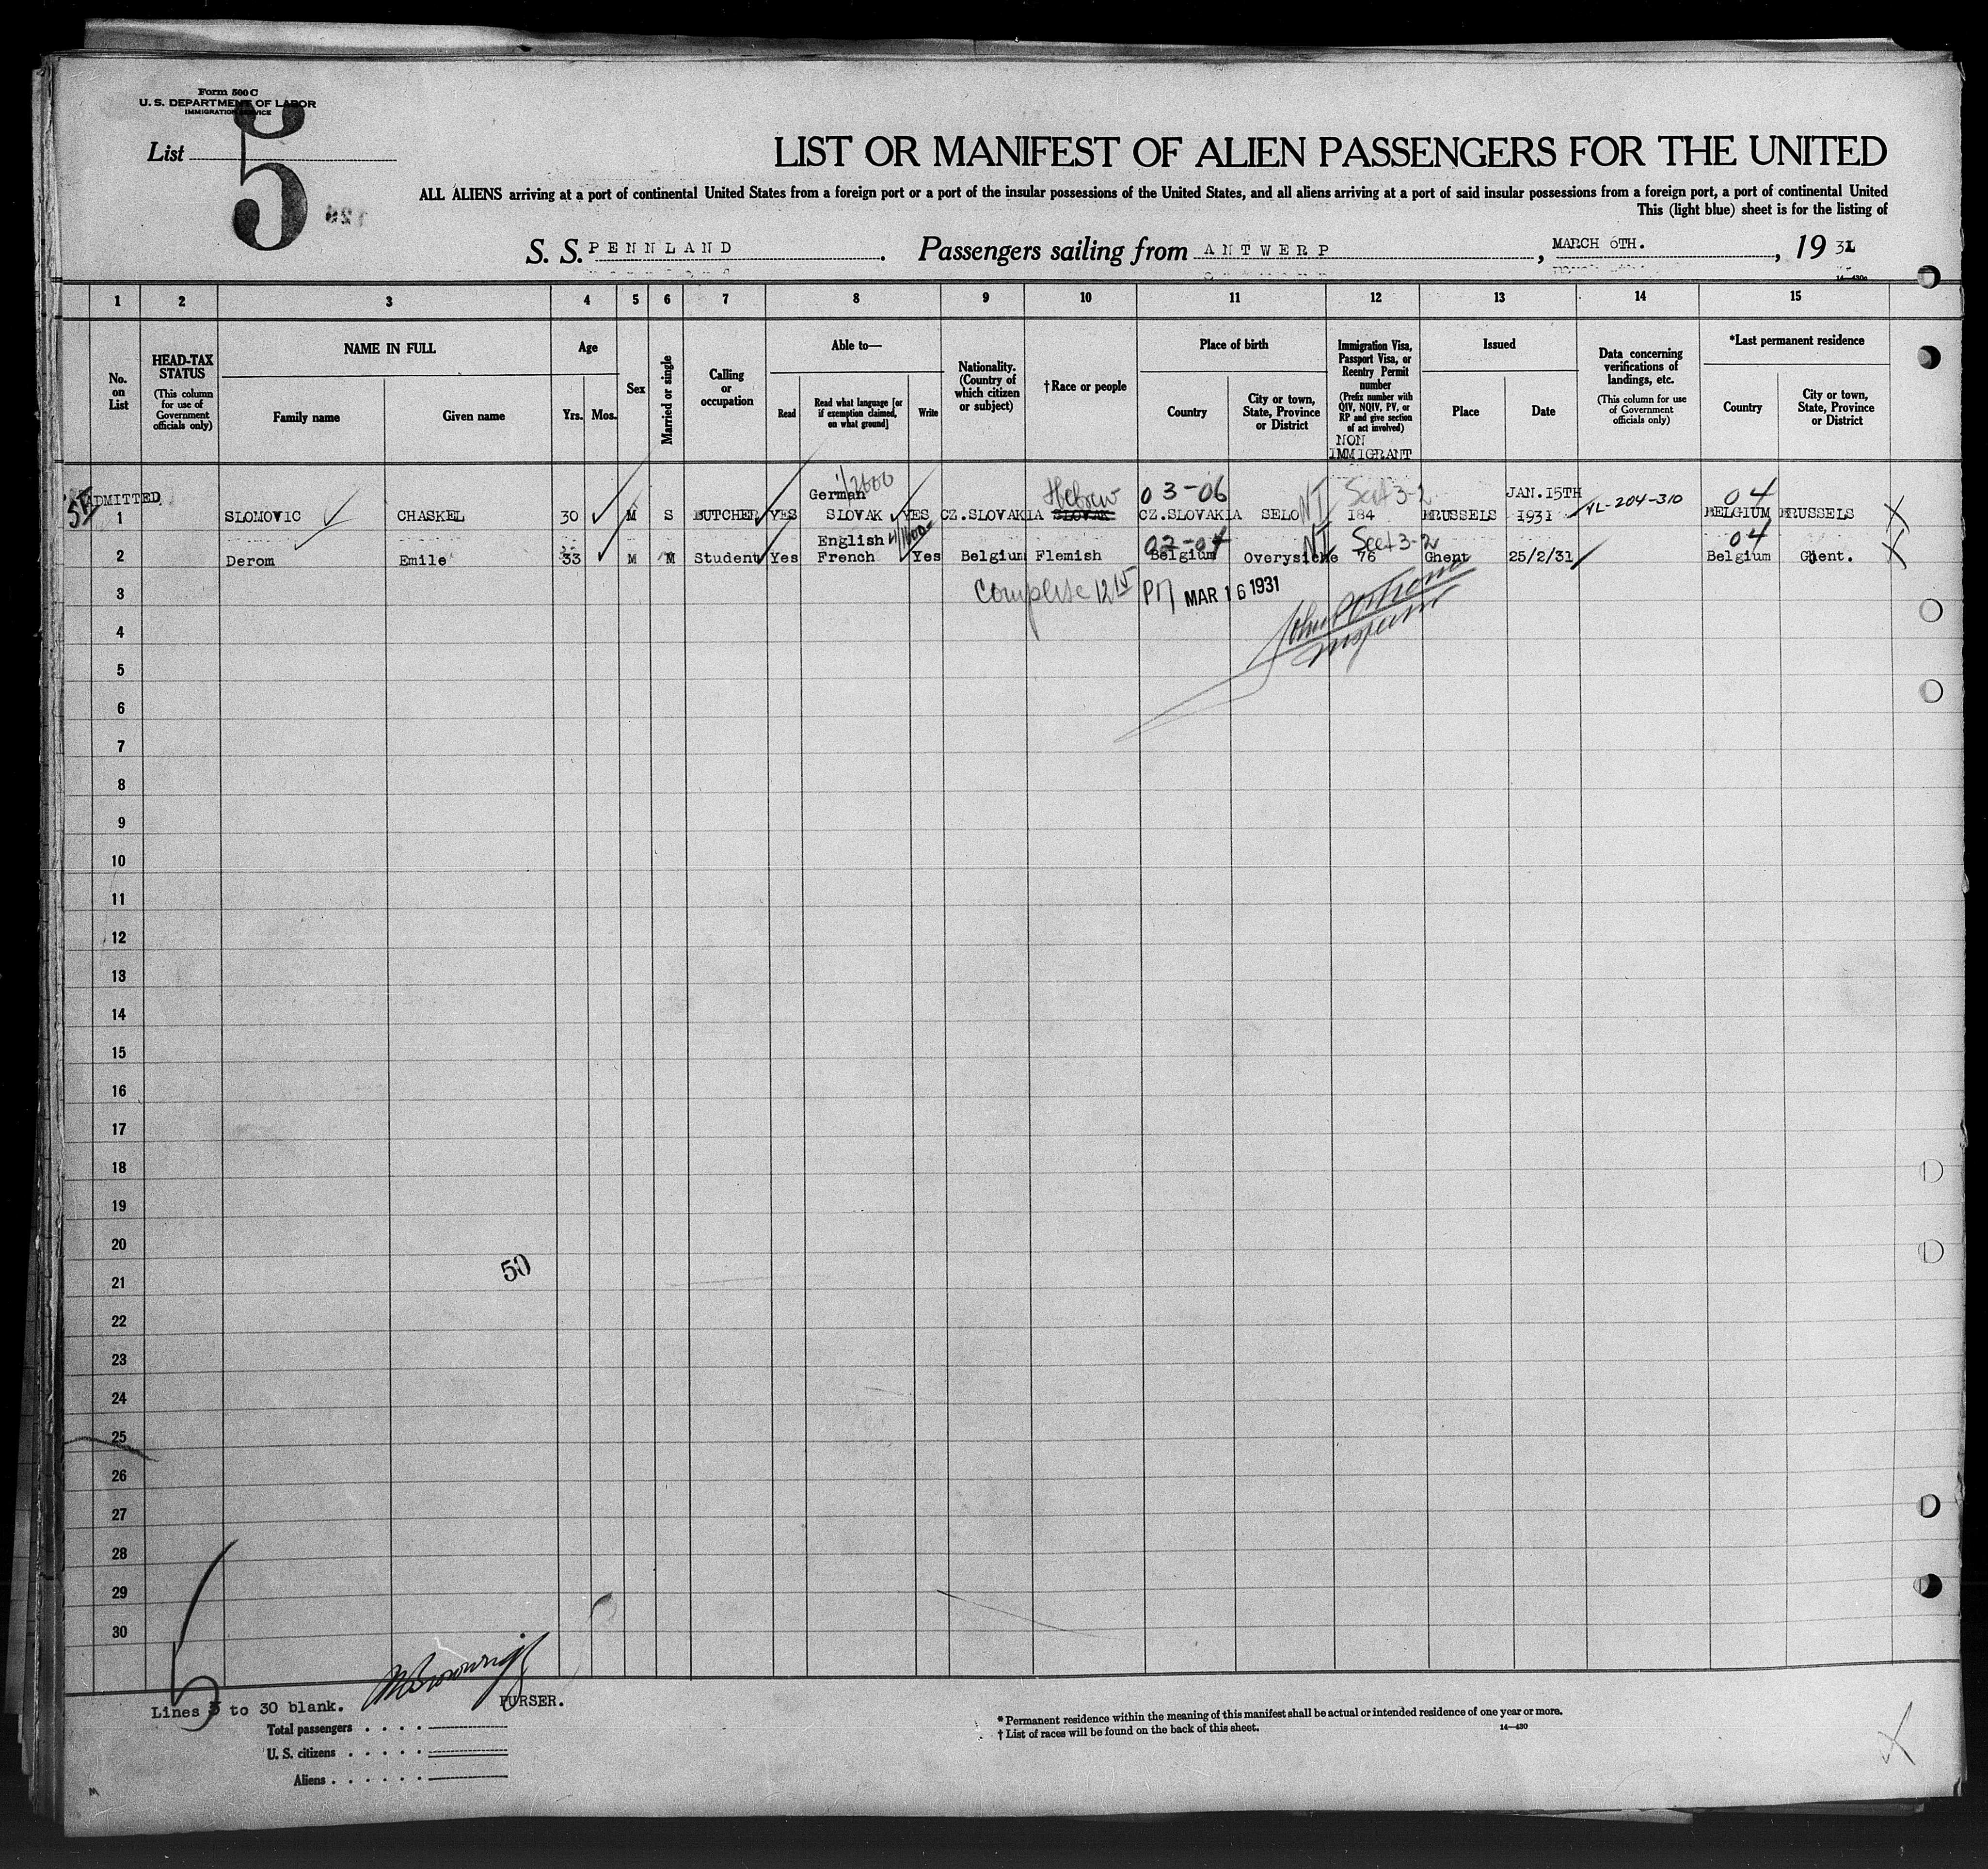 Form 500 C
U. S. DEPARTMENT OF LABOR
IMMIGRATION SERVICE
List 5
LIST OR MANIFEST OF ALIEN PASSENGERS FOR THE UNITED
ALL ALIENS arriving at a port of continental United States from a foreign port or a port of the insular possessions of the United States, and all aliens arriving at a port of said insular possessions from a foreign port, a port of continental United
This (light blue) sheet is for the listing of
S. S. PENNLAND. Passengers sailing from ANTWERP, MARCH 6TH., 1931
14—430a
1 2 3 4 5 6 7 8 9 10 11 12 13 14 15
No. on List
HEAD-TAX STATUS
(This column for use of Government officials only)
NAME IN FULL
Family name
Given name
Age
Yrs. Mos.
Sex
Married or single
Calling or occupation
Able to—
Read
Read what language [or if exemption claimed, on what ground]
Write
Nationality. (Country of which citizen or subject)
†Race or people
Place of birth
Country
City or town, State, Province or District
Immigration Visa, Passport Visa, or Reentry Permit number
(Prefix number with QIV, NQIV, PV, or RP and give section of act involved)
NON
IMMIGRANT
Issued
Place
Date
Data concerning verifications of landings, etc.
(This column for use of Government officials only)
*Last permanent residence
Country
City or town, State, Province or District
ADMITTED German 1/2600 Hebrew 03-06 Sect 3-2 JAN.15TH 04
1 SLOMOVIC CHASKEL 30 M S BUTCHER YES SLOVAK YES CZ.SLOVAKIA SLOVAK CZ.SLOVAKIA SELO NI 184 BRUSSELS 1931 VL-204-310 BELGIUM BRUSSELS
English 02-04 Sect 3-2 04
2 Derom Emile 33 M M Student Yes French Yes Belgium Flemish Belgium Overysche NI 76 Ghent 25/2/31 Belgium Ghent.
3 Complete 12 15 PM MAR 16 1931
4 Inspector
5
6
7
8
9
10
11
12
13
14
15
16
17
18
19
20
50
21
22
23
24
25
26
27
28
29
30
Lines 3 to 30 blank. PURSER.
Total passengers
U. S. citizens
Aliens
* Permanent residence within the meaning of this manifest shall be actual or intended residence of one year or more.
† List of races will be found on the back of this sheet. 14—430